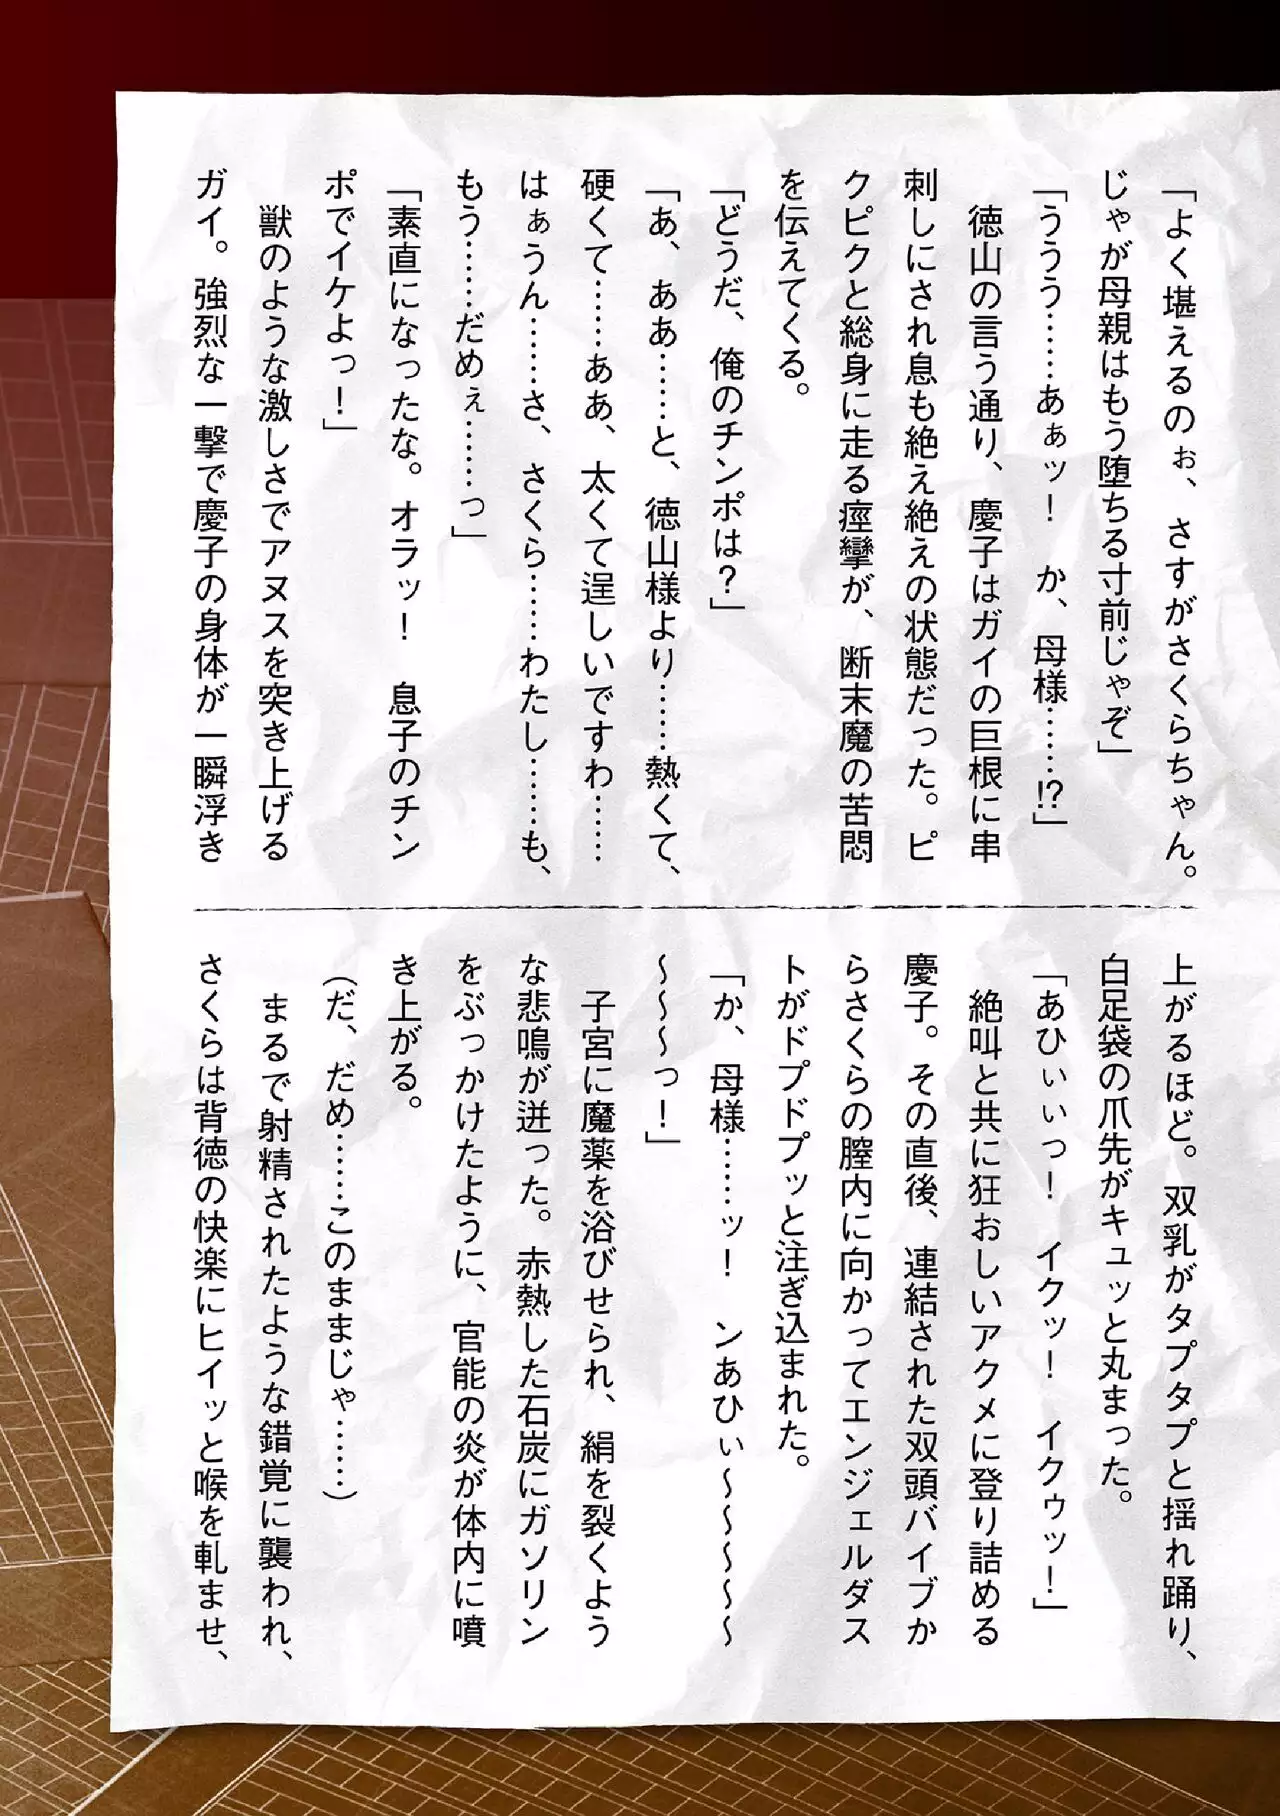 「よく堪えるのぉ、さすがさくらちゃん。
じゃが母親はもう堕ちる寸前じゃぞ」
「ううう……あぁッ！　か、母様……⁉」
　徳山の言う通り、慶子はガイの巨根に串
刺しにされ息も絶え絶えの状態だった。ピ
クピクと総身に走る痙攣が、断末魔の苦悶
を伝えてくる。
「どうだ、俺のチンポは？」
「あ、ああ……と、徳山様より……熱くて、
硬くて……ああ、太くて逞しいですわ……
はぁうん……さ、さくら……わたし……も、
もう……だめぇ……っ」
「素直になったな。オラッ！　息子のチン
ポでイケよっ！」
　獣のような激しさでアヌスを突き上げる
ガイ。強烈な一撃で慶子の身体が一瞬浮き
上がるほど。双乳がタプタプと揺れ踊り、
白足袋の爪先がキュッと丸まった。
「あひぃぃっ！　イクッ！　イクゥッ！」
　絶叫と共に狂おしいアクメに登り詰める
慶子。その直後、連結された双頭バイブか
らさくらの膣内に向かってエンジェルダス
トがドプドプッと注ぎ込まれた。
「か、母様……ッ！　ンあひぃ～～～～～
～～～っ！」
　子宮に魔薬を浴びせられ、絹を裂くよう
な悲鳴が迸った。赤熱した石炭にガソリン
をぶっかけたように、官能の炎が体内に噴
き上がる。
（だ、だめ……このままじゃ……）
　まるで射精されたような錯覚に襲われ、
さくらは背徳の快楽にヒイッと喉を軋ませ、